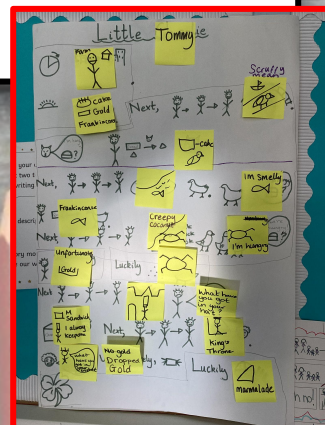 Little Tommy ie
Farm
Scruffy
mean
Cake
Gold
Frankincense
Next,
cake
Next,
I'm Smelly
Frankincense
Creepy
coconut
Next
I'm hungry
Unfortunately
Gold
Luckily
Next
What have
you got
in your
hat?
Sandwich
I always
keep one
Next,
King's
Throne
what
have you
got in
No gold
Dropped
Gold
ly,
Luckily
marmalade